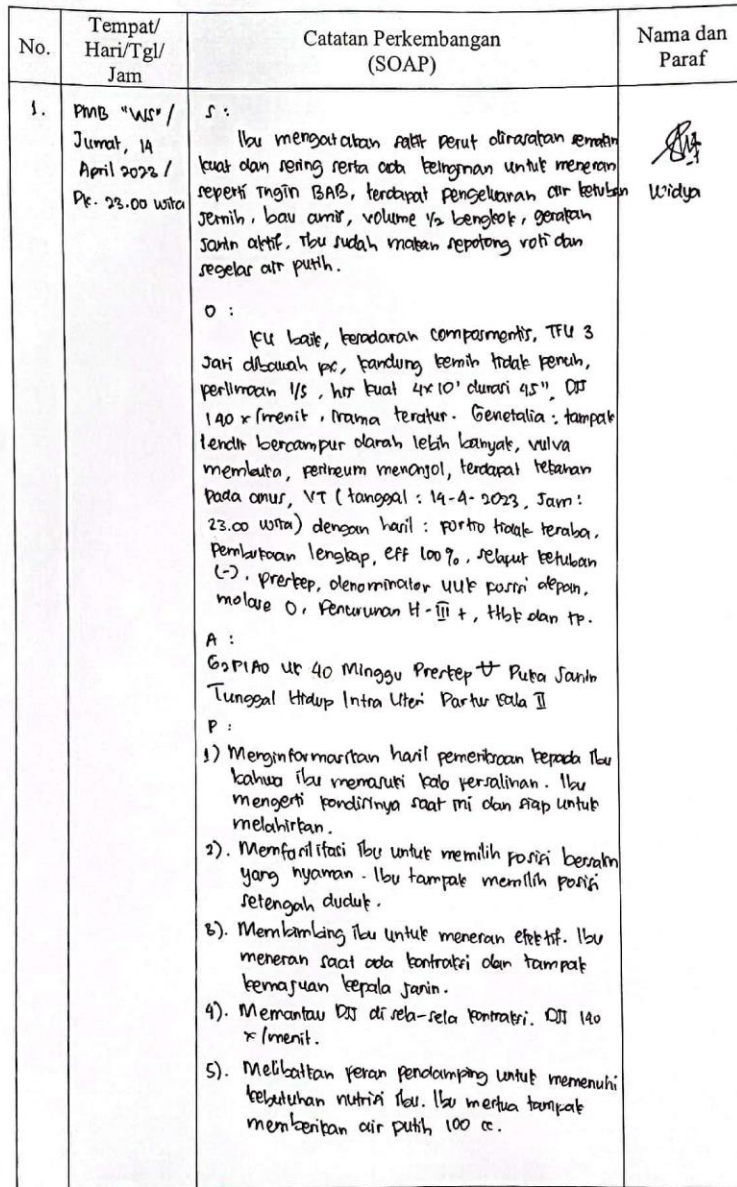 No.
Tempat/
Hari/Tgl/
Jam
Catatan Perkembangan
(SOAP)
Nama dan
Paraf
1.
PMB "WS" /
Jumat, 14
April 2023 /
Pk. 23.00 wita
S :
Ibu mengatakan sakit perut dirasakan semakin
kuat dan sering serta ada keinginan untuk meneran
seperti ingin BAB, terdapat pengeluaran air ketuban
jernih, bau amis, volume 1/2 bengkok, gerakan
janin aktif. Ibu sudah makan sepotong roti dan
segelas air putih.
Widya
O :
KU baik, kesadaran composmentis, TFU 3
jari dibawah px, kandung kemih tidak penuh,
perlimaan 1/5, his kuat 4x10' durasi 45", DJJ
140 x/menit, irama teratur. Genetalia : tampak
lendir bercampur darah lebih banyak, vulva
membuka, perineum menonjol, terdapat tekanan
pada anus, VT (tanggal : 14-4-2023, Jam :
23.00 wita) dengan hasil : portio tidak teraba,
Pembukaan lengkap, eff 100%, selaput ketuban
(-), preskep, denominator UUK posisi depan,
molase 0, Penurunan H-III +, ttbk dan tp.
A :
G2P1A0 UK 40 Minggu Preskep U Puka Janin
Tunggal Hidup Intra Uteri Partus Kala II
P :
1) Menginformasikan hasil pemeriksaan kepada Ibu
bahwa ibu memasuki kala persalinan. Ibu
mengerti kondisinya saat ini dan siap untuk
melahirkan.
2). Memfasilitasi Ibu untuk memilih posisi bersalin
yang nyaman. Ibu tampak memilih posisi
setengah duduk.
3). Membimbing ibu untuk meneran efektif. Ibu
meneran saat ada kontraksi dan tampak
kemajuan kepala janin.
4). Memantau DJJ di sela-sela kontraksi. DJJ 140
x/menit.
5). Melibatkan peran pendamping untuk memenuhi
kebutuhan nutrisi ibu. Ibu mertua tampak
memberikan air putih 100 cc.